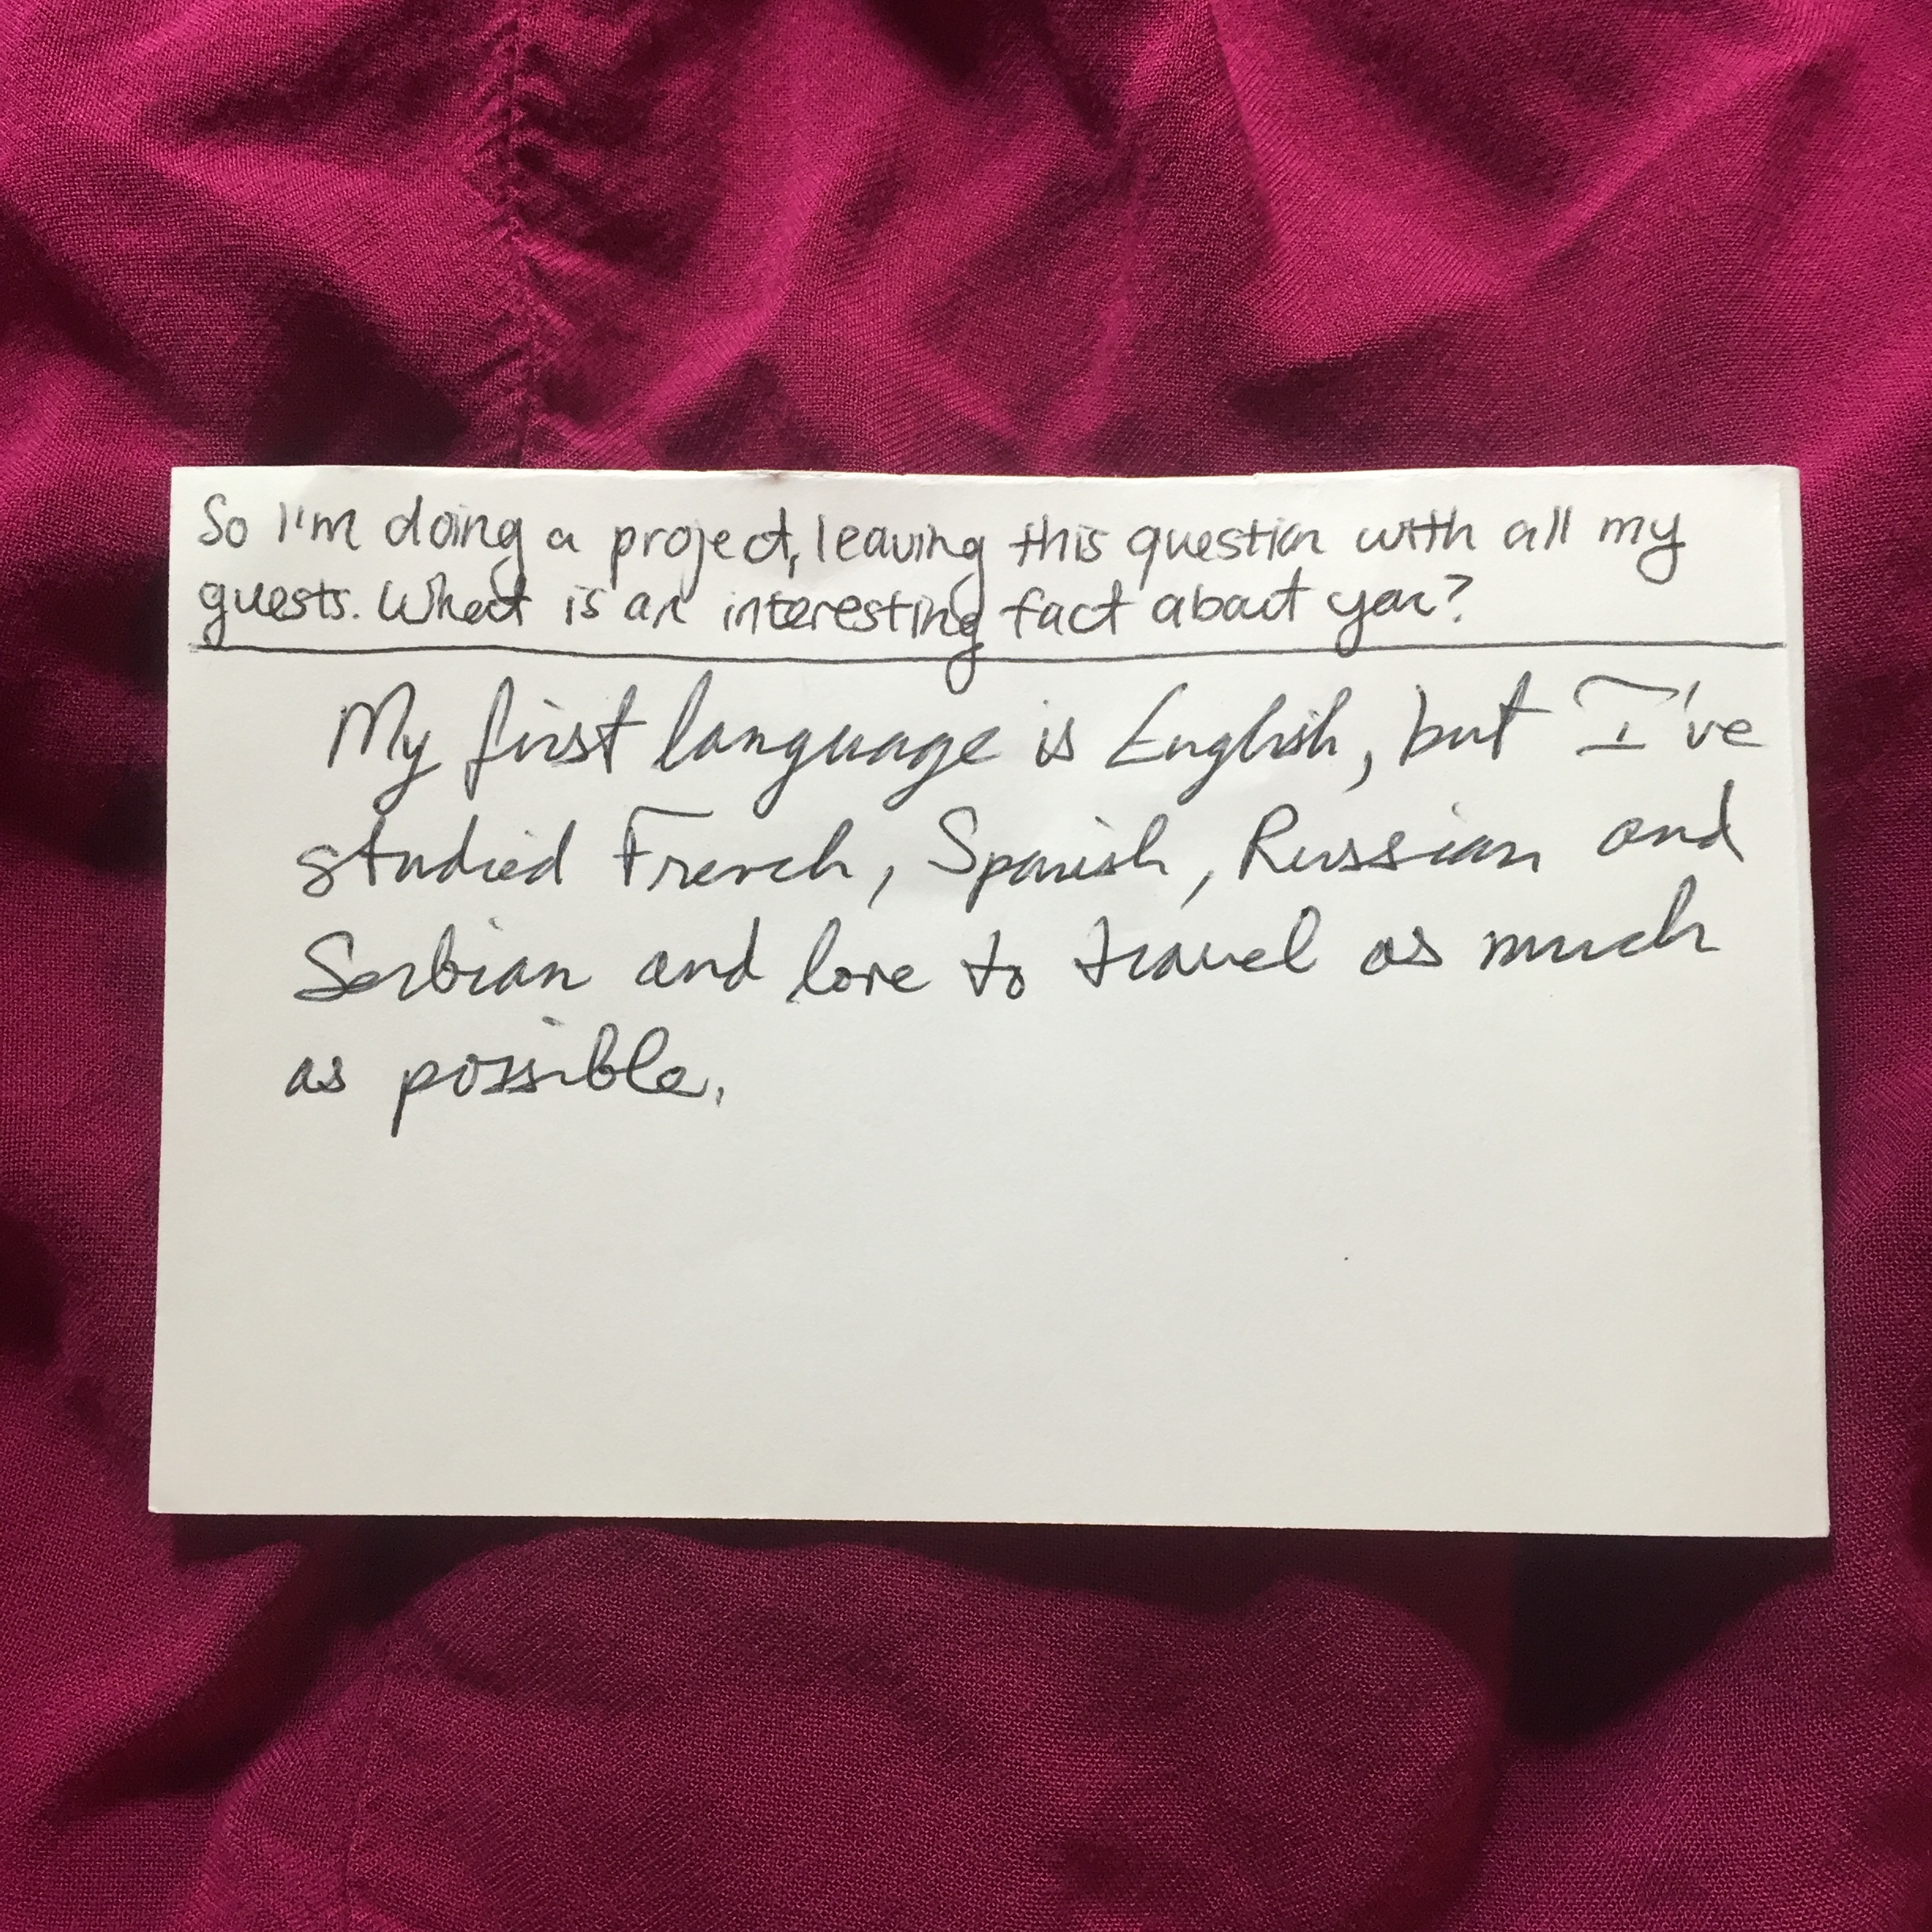 So I'm doing a project, leaving this question with all my
guests. What is an interesting fact about you?
My first language is English, but I've
studied French, Spanish, Russian and
Serbian and love to travel as much
as possible.